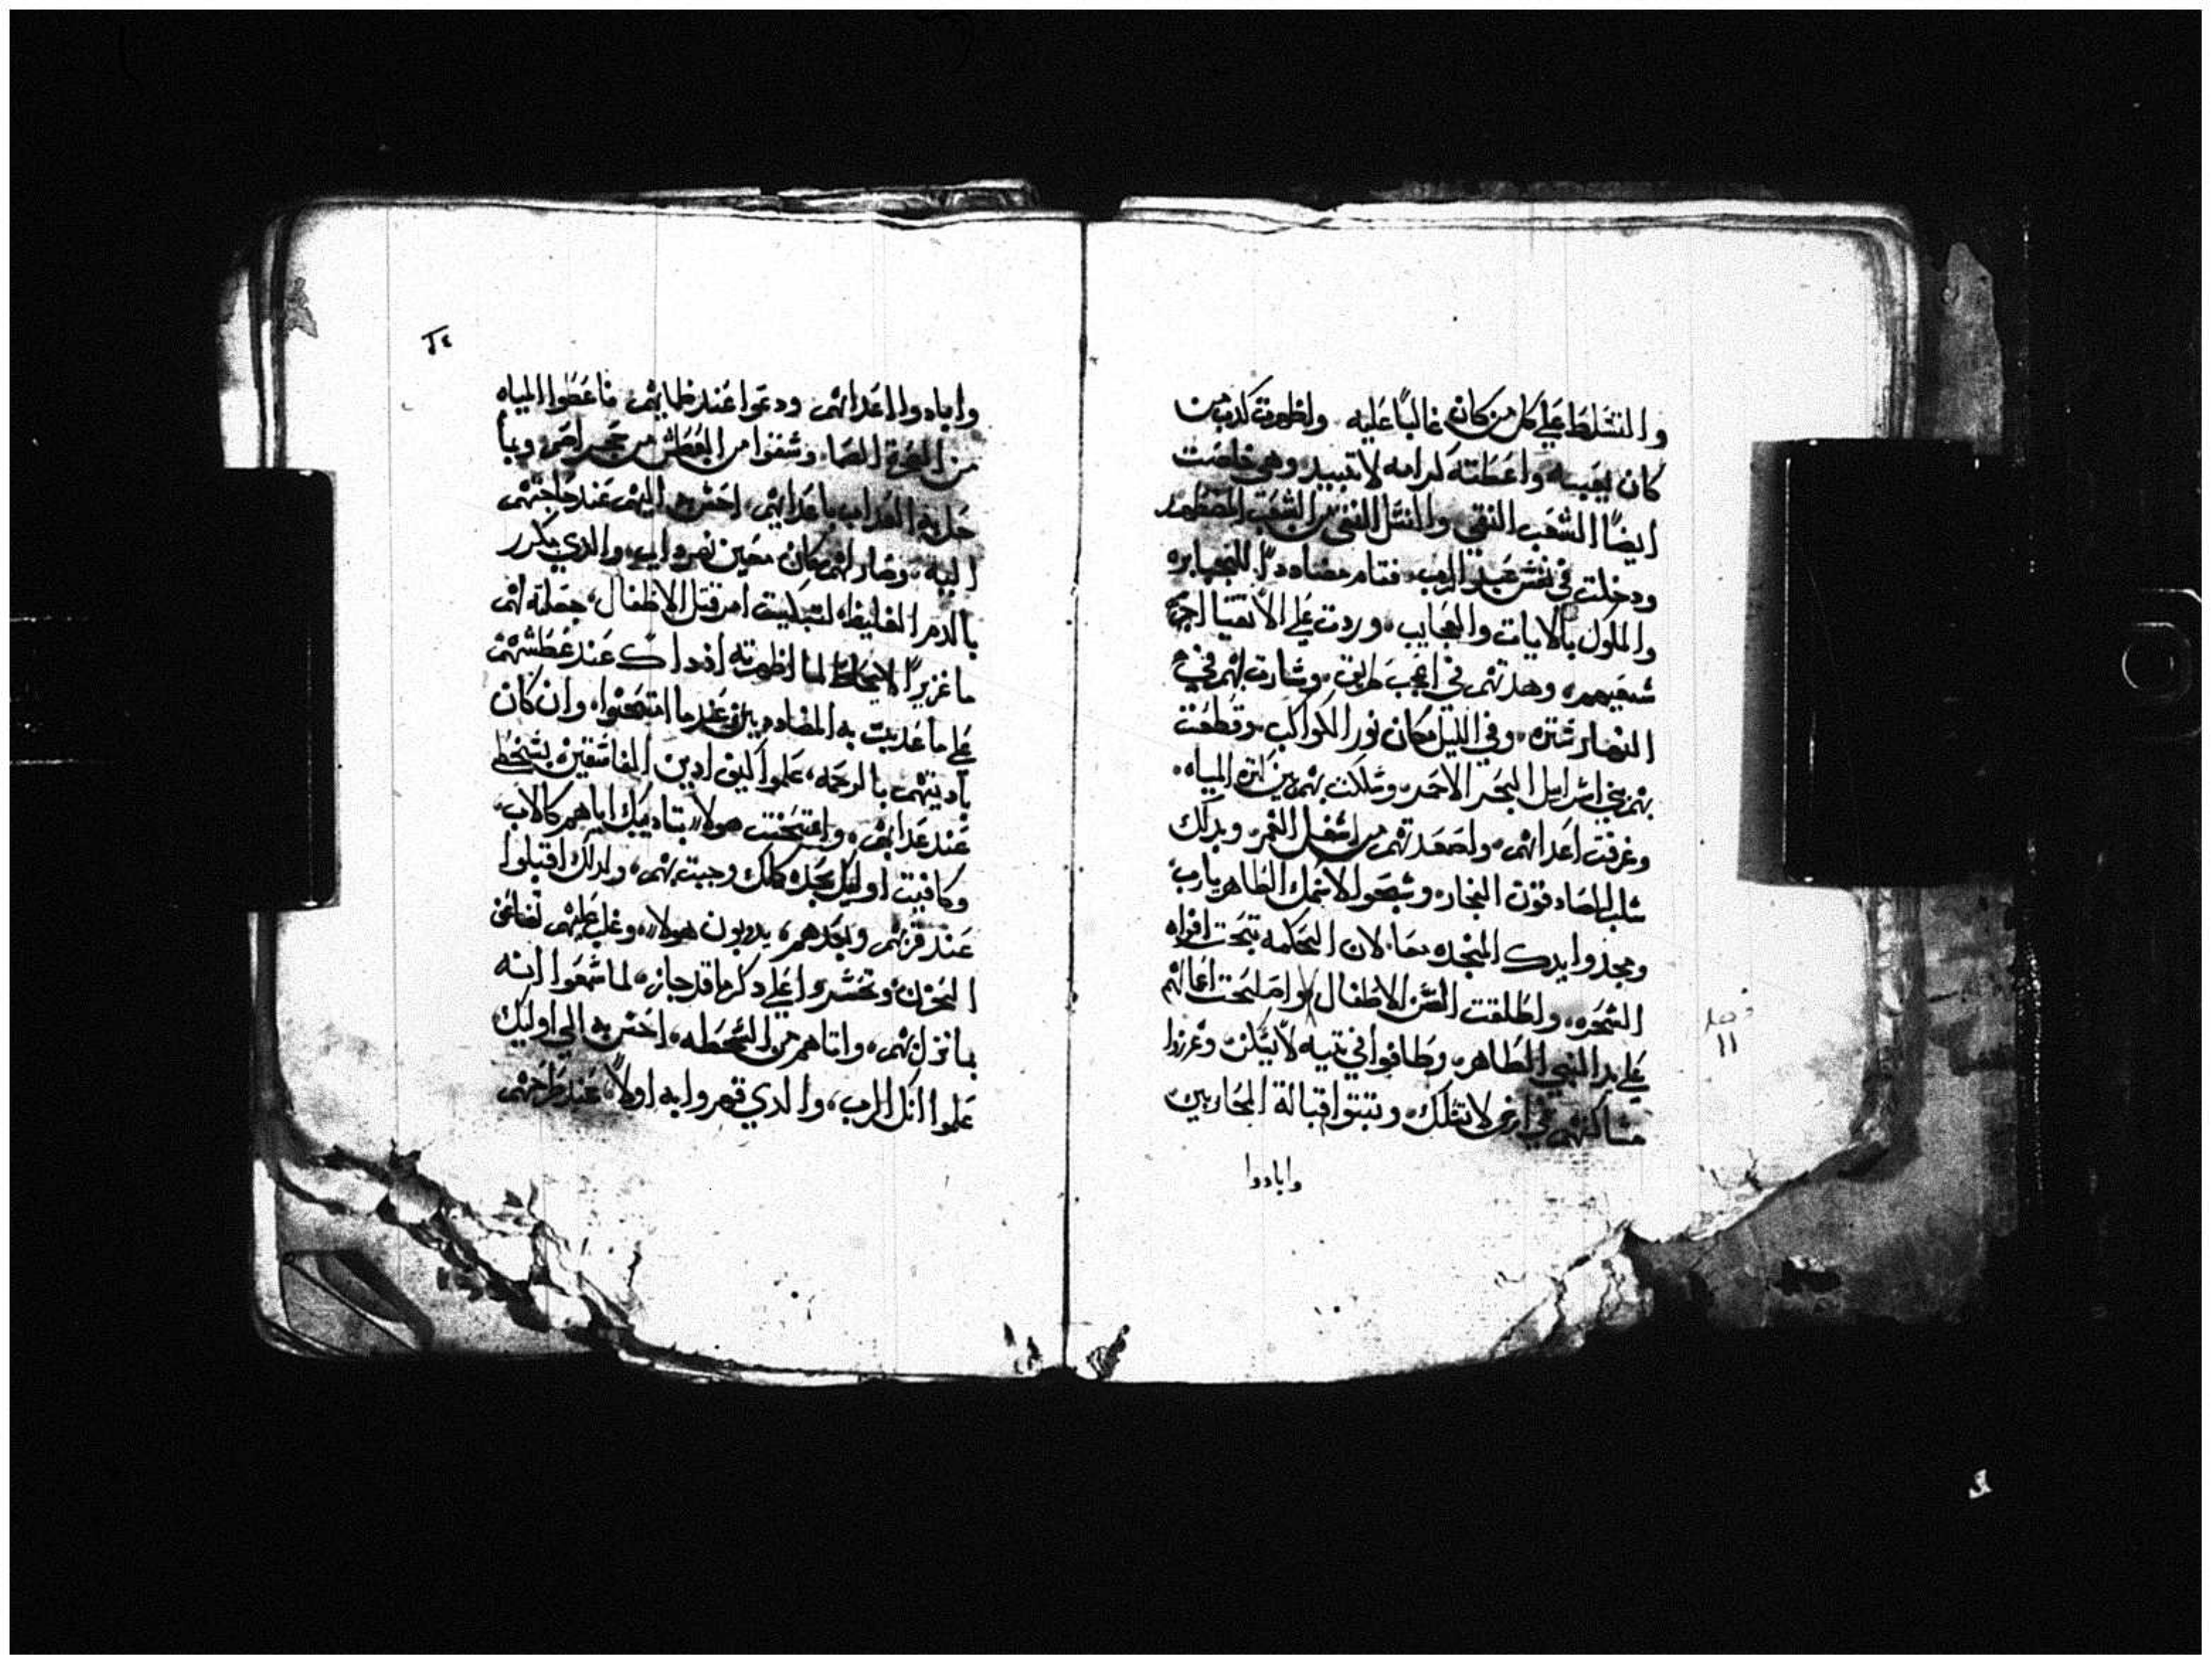 والتسلط علي كل من كان غالباً عليه واظهرت كدب من
كان يعيبه واعطته كرامه لا تبيد وهي خلصت
ايضاً الشعب النقي والنسل النقي من الشعب المضطهد
ودخلت في نفس عبد الرب فقام مضاددًا للجبابره
والملوك بالايات والعجايب وردت علي الاتقيا اجرة
شعيهم وهدتهم في اعجب طريق وصارت لهم في
النهار ستره وفي الليل مكان نور الكواكب وقطعت
بهم بني اسراييل البحر الاحمر وسلكت بهم بين كثره المياه
وغرقت اعداهم واصعدتهم من اسفل الغمر وبدلك
سلب الصادقون الفجار وسبحوا لاسمك الطاهر يارب
ومجدوا يدك المنجده معا لان الحكمه فتحت افواه
الشجره واطلقت السن الاطفال واصلحت اعمالهم
علي يد النبي الطاهر وطافوا في تيه لا يسكن وغرزوا
مساكنهم في ارض لا تسلك وثبتوا قبالة المحاربين
وابادوا
فصل
١١
٢٤
وابادوا اعداهم ودعوا عند ظمايهم فاعطوا المياه
من الصخرة الصما وشفوا من العطش من حجر اصم وبما
حل به العداب باعدايهم احسن اليهم عند حاجتهم
اليه وصار لهم مكان معين نهر دايم والدي يكرر
بالدم الغليظ لتبكيت امر قتل الاطفال جعلته لهم
ما غزيراً لما اظهرته اذ داك عند عطشهم
علي ما عدبت به المضاددين عند ما امتحنوا وان كان
بادبتهم بالرحمه علموا كيف ادين الفاسقين بسخط
عند عدابهم وامتحنت هولا بتاديبك اياهم كالاب
وكافيت اوليك بجده كملك وجبت بهم ولدلك اقبلوا
عند قربهم وبعدهم يدوبون هولا وغلب عليهم تضاعف
الحزن وتحسروا علي دكر ما قد جاز لما سمعوا انه
بما نزل بهم واتاهم من السخطه احسن به الي اوليك
علموا انك الرب والدي قهروا به اولاً عند طرحهم